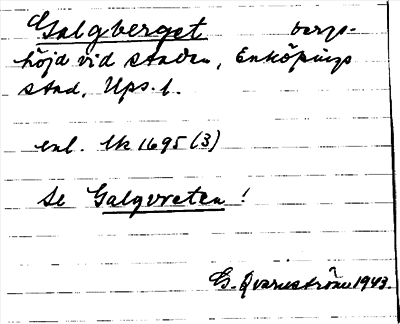 Galgberget bergs-
höjd vid staden, Enköpings
stad, Ups. l.
enl. lk 1695 (3)
Se Galgvreten !
G. Qvarnström 1943.